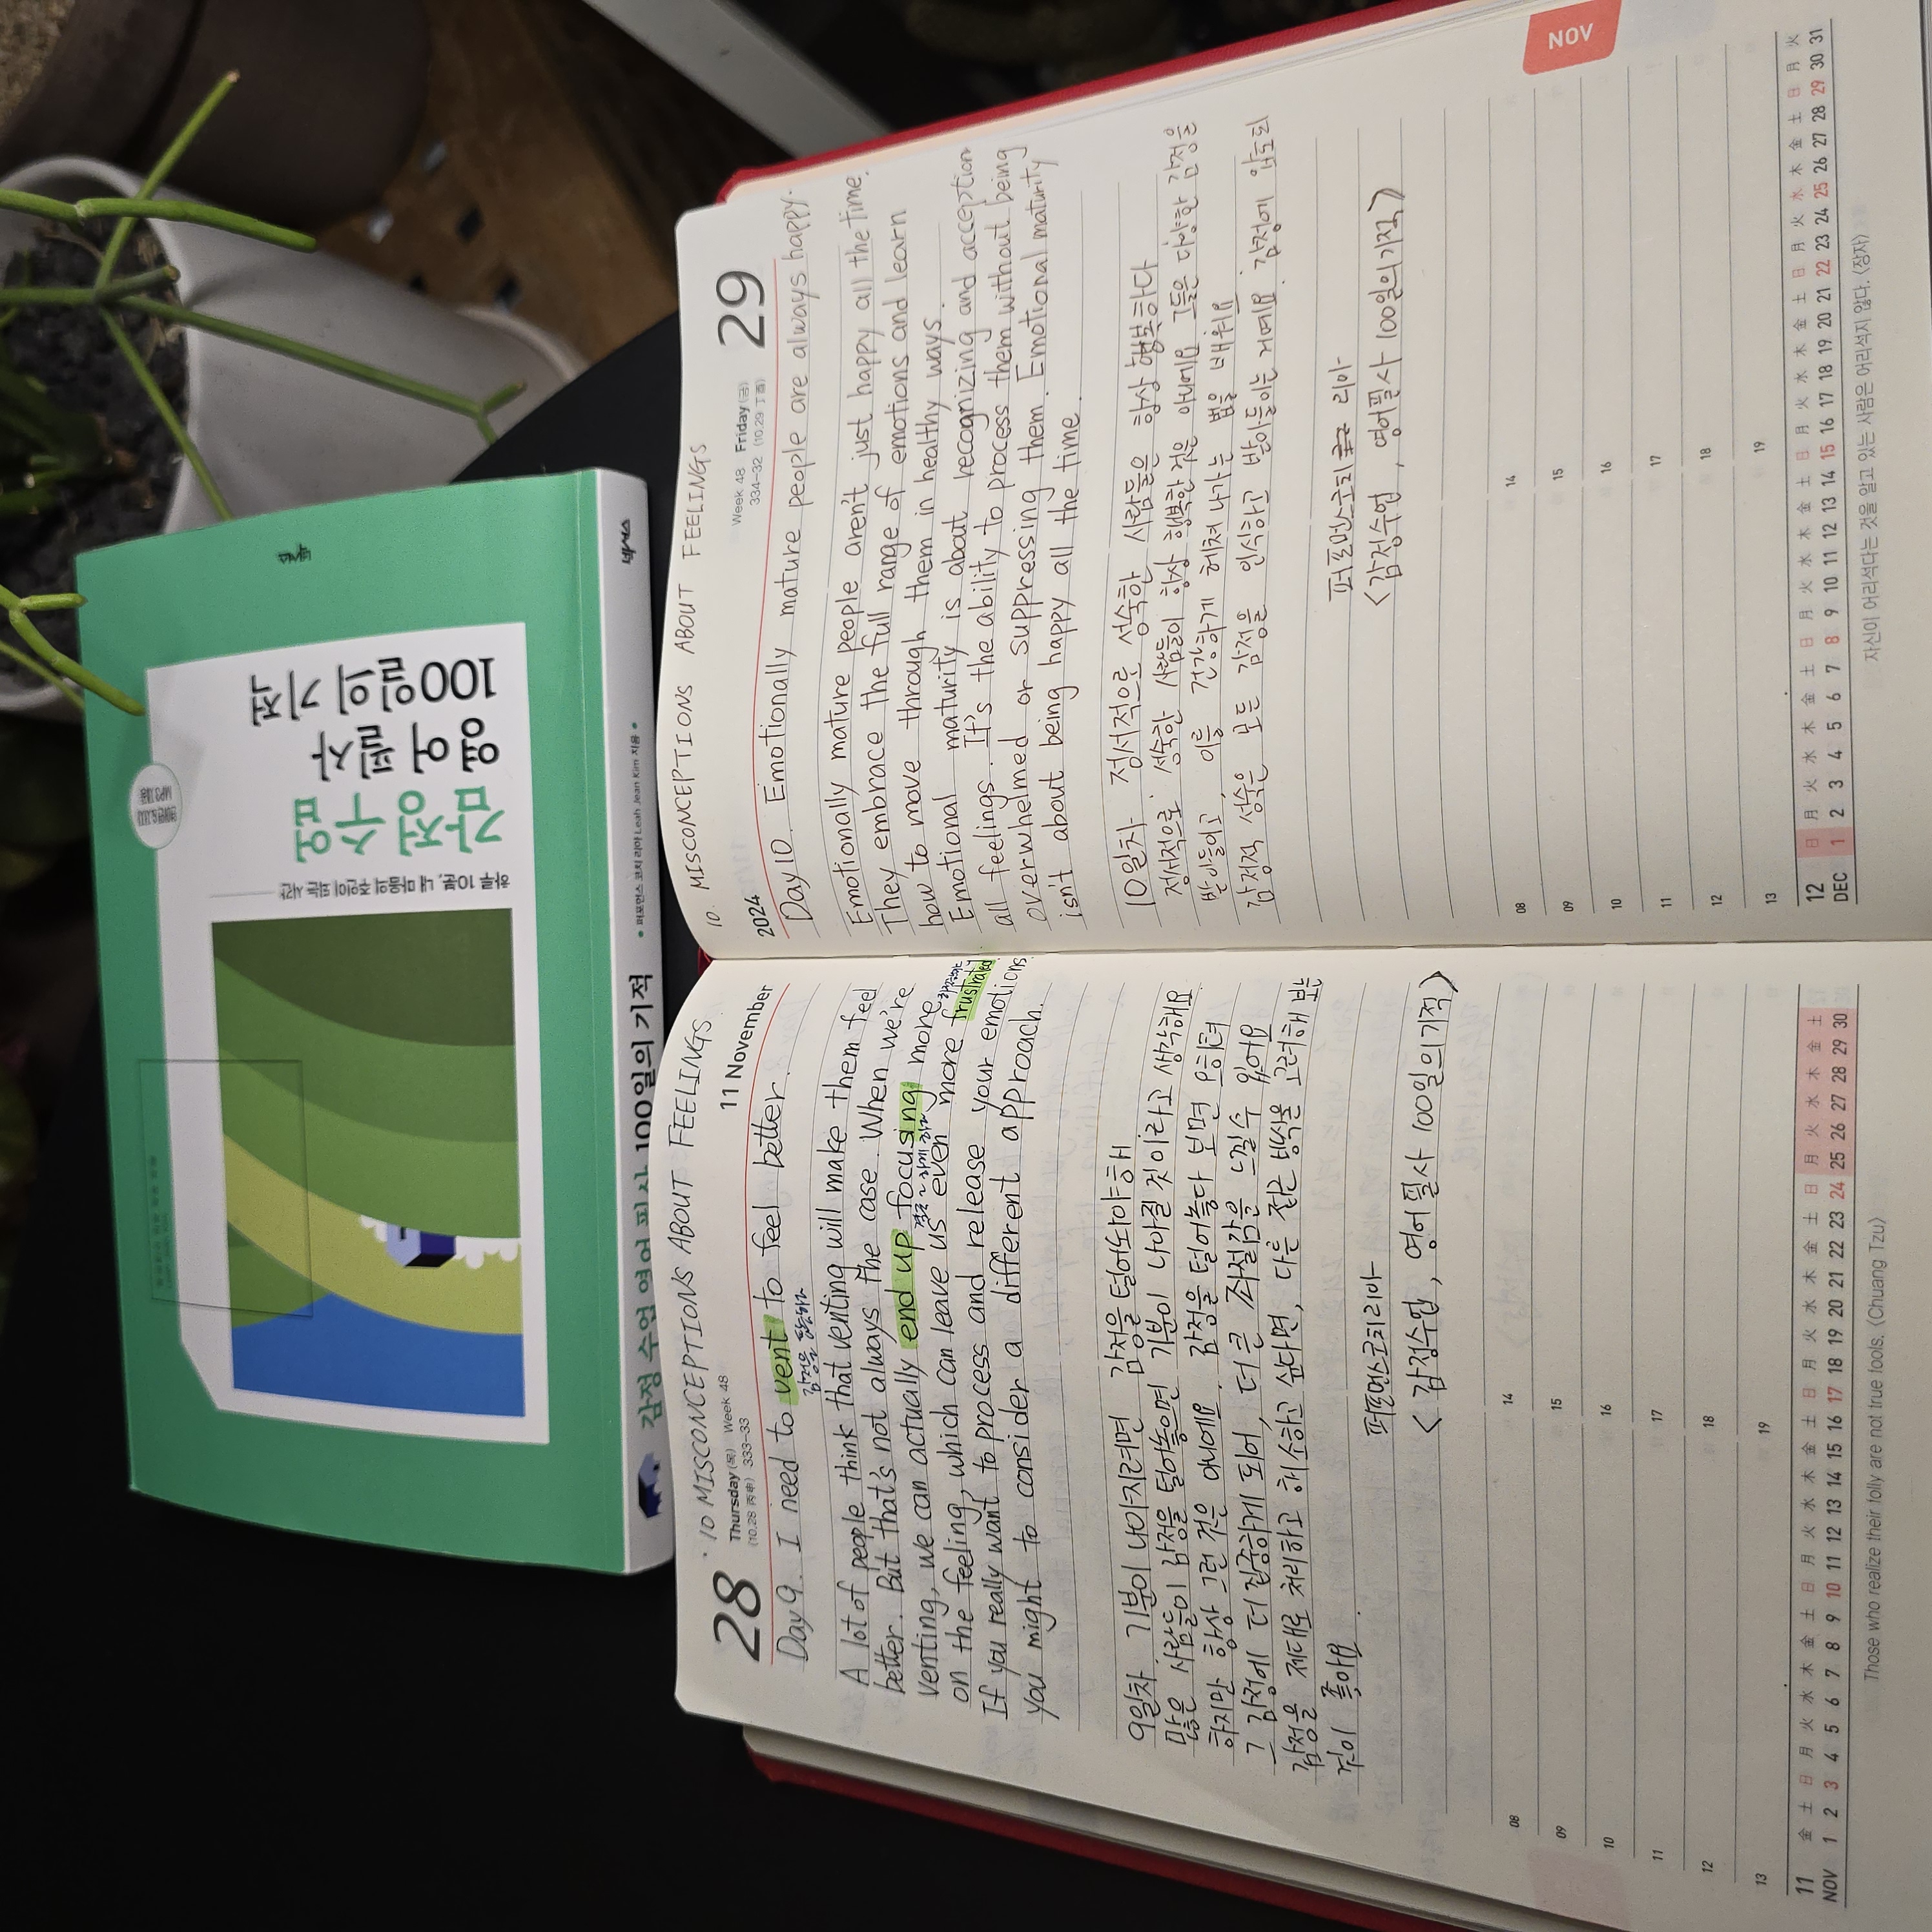 하루 10분, 내 마음의 주인이 되는 시간
감정
수업
영어 필사
100일의 기적
MP3
감정 수업 영어 필사 100일의 기적
• 퍼포먼스 코치 리아 Leah Jean Kim 지음 •
넥서스
· 10 MISCONCEPTIONS ABOUT FEELINGS
28
Thursday (목) Week 48
(10.28 丙申) 333-33
11 November
Day 9. I need to vent to feel better.
감정을
A lot of people think that venting will make them feel
better. But that's not always the case. When we're
venting, we can actually end up focusing more
on the feeling, which can leave us even more frustrated.
If you really want to process and release your emotions
you might to consider a different approach.
9일차 기분이 나아지려면 감정을 털어놔야 해
많은 사람들이 감정을 털어놓으면 기분이 나아질 것이라고 생각해요
하지만 항상 그런 것은 아니에요. 감정을 털어놓다 보면 오히려
그 감정에 더 집중하게 되어, 더 큰 좌절감을 느낄 수 있어요
감정을 제대로 처리하고 해소하고 싶다면, 다른 접근 방식을 고려해 보는
것이 좋아요.
퍼포먼스코치리아
<감정수업, 영어필사 100일의기적>
08 14
09 15
10 16
11 17
12 18
13 19
11 金 土 日 月 火 水 木 金 土 日 月 火 水 木 金 土 日 月 火 水 木 金 土 日 月 火 水 木 金 土
NOV 1 2 3 4 5 6 7 8 9 10 11 12 13 14 15 16 17 18 19 20 21 22 23 24 25 26 27 28 29 30
Those who realize their folly are not true fools. (Chuang Tzu)
10. MISCONCEPTIONS ABOUT FEELINGS
2024
Week 48 Friday (금)
334-32 (10.29 丁酉)
29
Day 10. Emotionally mature people are always happy.
Emotionally mature people aren't just happy all the time.
They embrace the full range of emotions and learn
how to move through them in healthy ways.
Emotional maturity is about recognizing and acception
all feelings. It's the ability to process them without being
overwhelmed or suppressing them. Emotional maturity
isn't about being happy all the time.
10일차 정서적으로 성숙한 사람들은 항상 행복하다
정서적으로 성숙한 사람들이 항상 행복한 것은 아니에요 그들은 다양한 감정을
받아들이고, 이를 건강하게 헤쳐 나가는 법을 배워요
감정적 성숙은 모든 감정을 인식하고 받아들이는 거예요. 감정에 압도되
퍼포먼스코치 리아
<감정수업, 영어필사 100일의기적>
08 14
09 15
10 16
11 17
12 18
13 19
NOV
12 日 月 火 水 木 金 土 日 月 火 水 木 金 土 日 月 火 水 木 金 土 日 月 火 水 木 金 土 日 月 火
DEC 1 2 3 4 5 6 7 8 9 10 11 12 13 14 15 16 17 18 19 20 21 22 23 24 25 26 27 28 29 30 31
자신이 어리석다는 것을 알고 있는 사람은 어리석지 않다. (장자)